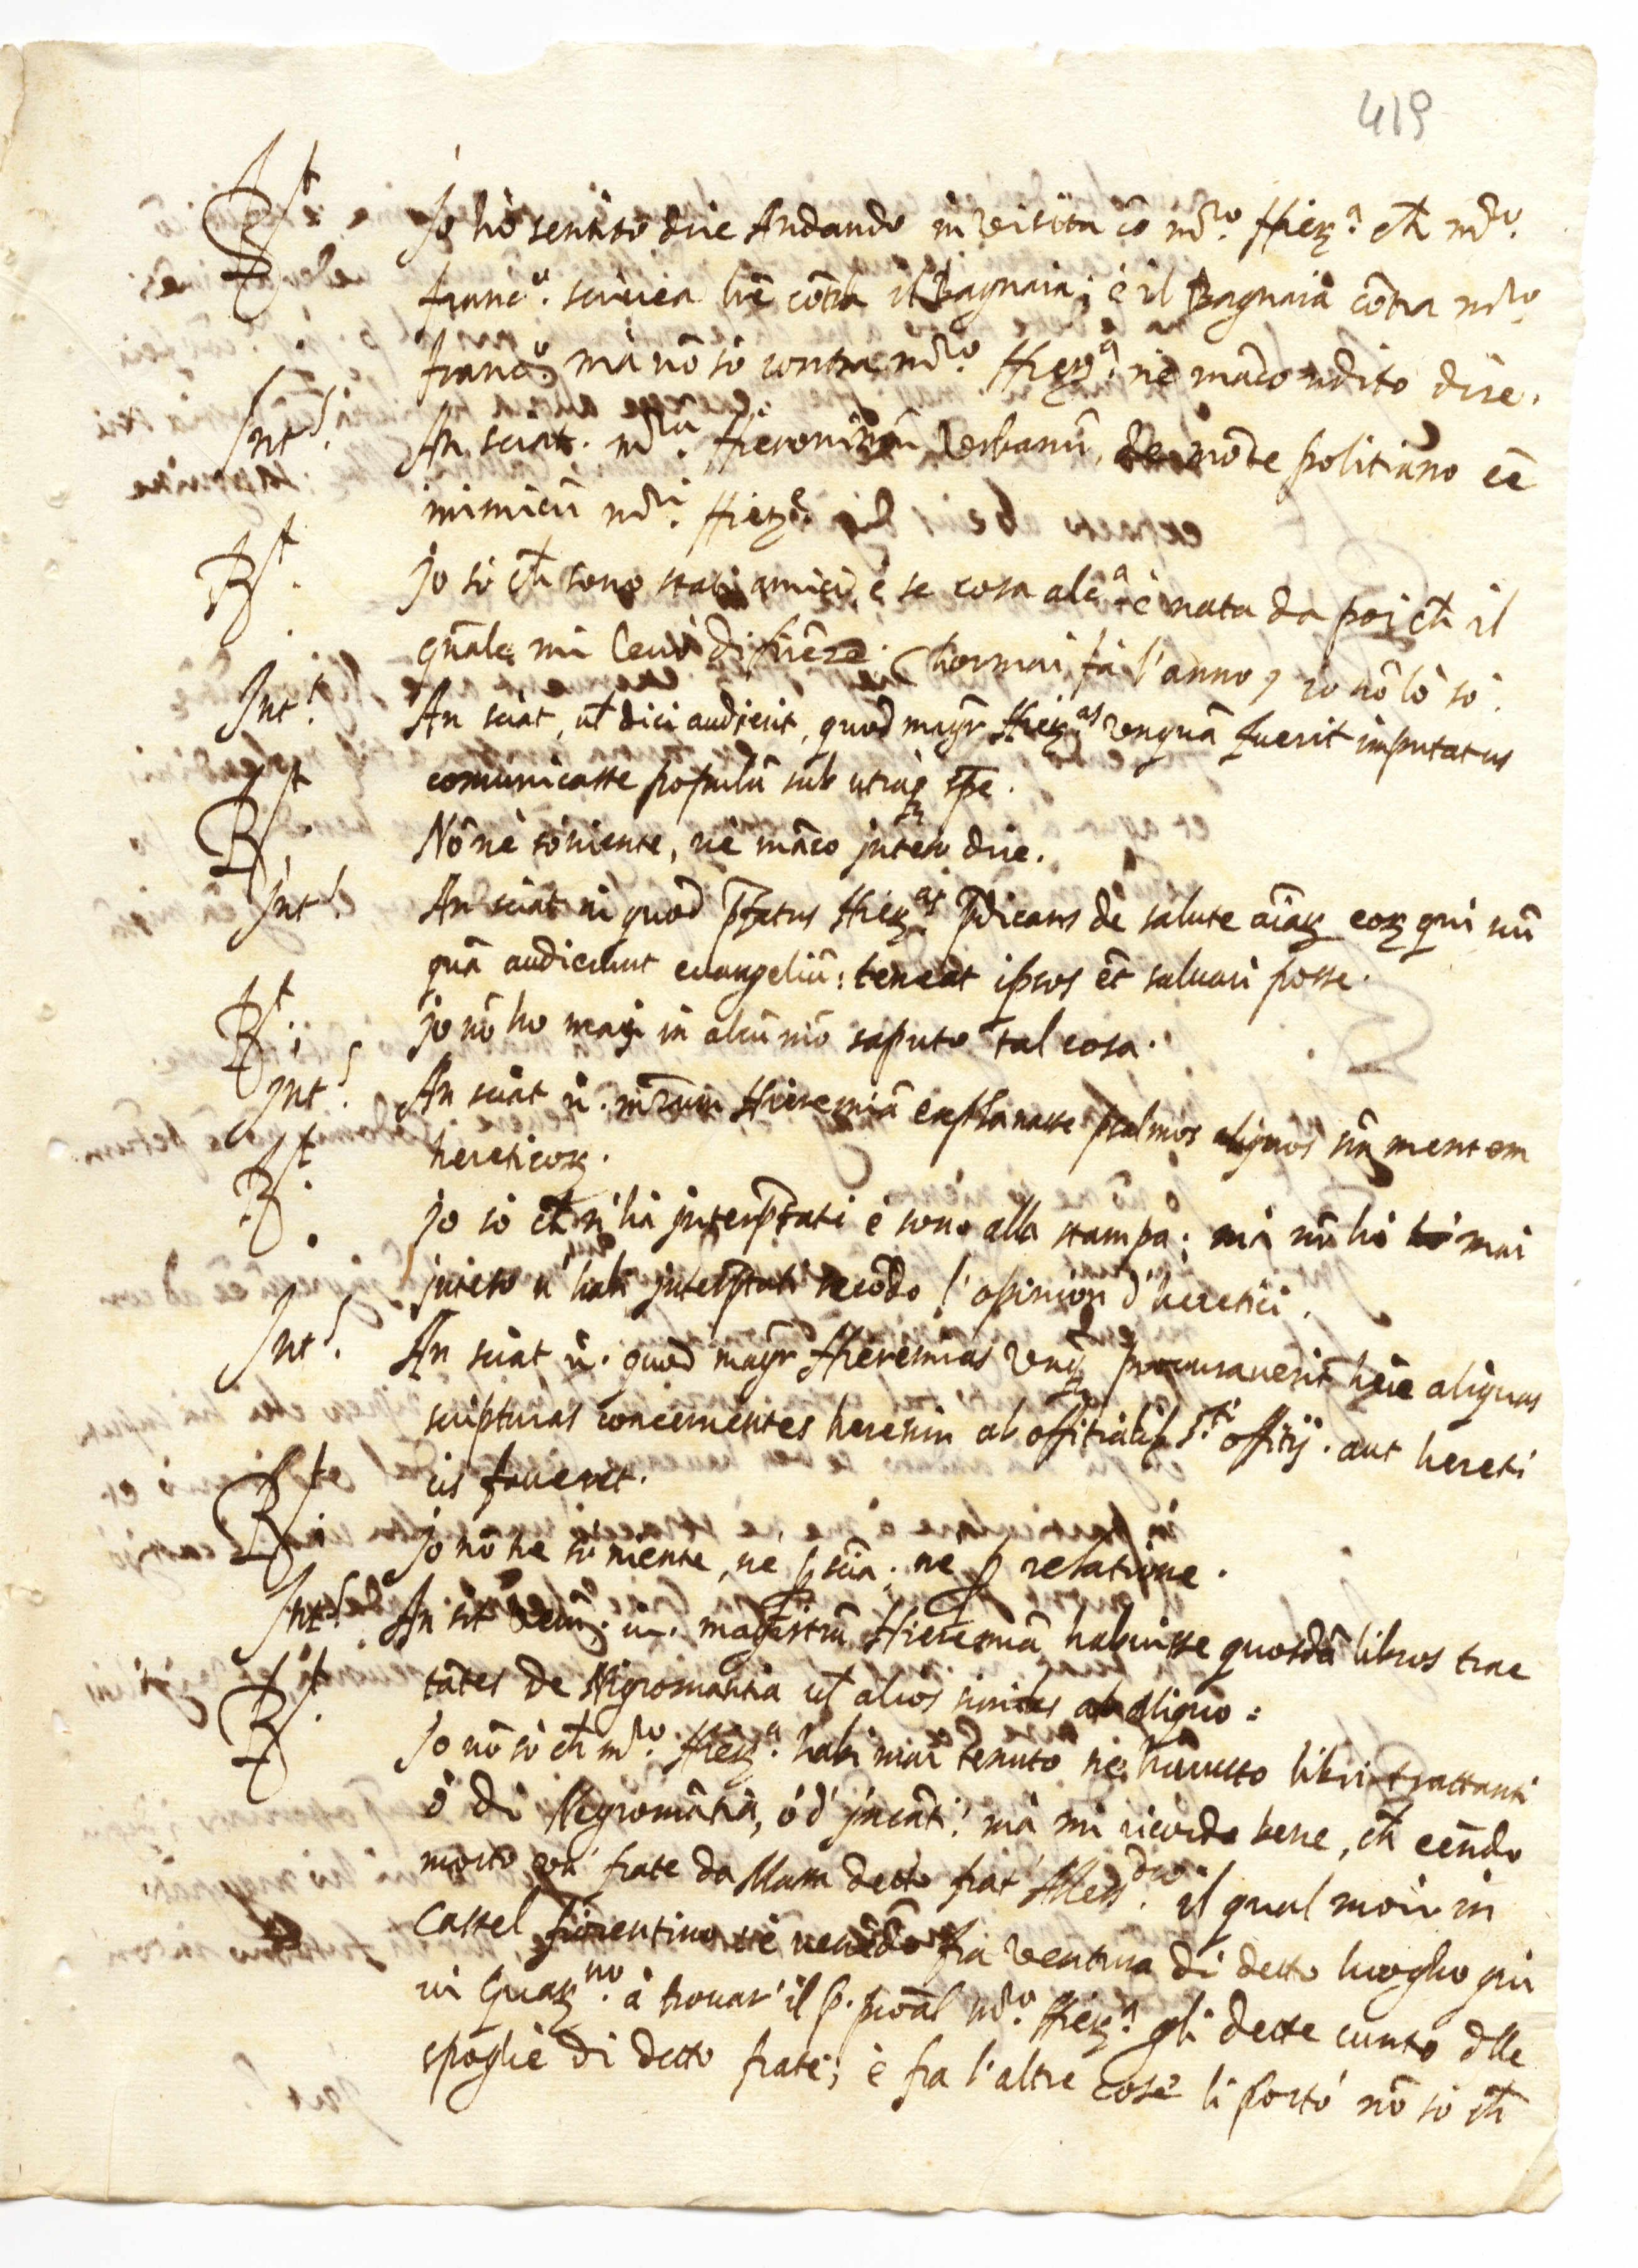 419
R.t Io hò sentito dire Andando in visita cō m.ro Hier.a ch̄ m.ro
franc.o scrivea lr̄e cōtra il Bagnaia; è il Bagnaia cōtra m.ro
franc.o mà nō sò contra m.ro Hier.a nè māco udito dire.
Int.s An sciat. m.rū Hieroninū Urbanū, de mōte politiano ēē
inimicū m.ri Hier.e
R.t Jo sò ch̄ sono stati amici, è se cosa alc.a è nata da poi ch̄ il
gn̄ale mi levò di firēze. (hormai fà l'anno) io nō lò sò.
Int.s An sciat, ul̄ dici audierit, quod mag.r Hier.as unquā fuerit imputatus
comunicasse populū sub utraq. sp̄e.
R.t Nō nè sò niente, nè māco inteso dire.
Int.s An sciat ul̄ quod p̄fatus Hier.as p̄dicans de salute aīar. eor. qui nū
quā audierunt euangeliū: teneat ipsos ēt saluari posse.
R.t Jo nō ho mai in alcū mō saputo tal cosa.
Int.s An sciat ul̄. m̄rum Hieremiā explanasse psalmos aliquos iux. mentem
hereticor.
R.t Jo sò ch̄ n'hà interp̄tati è sono alla stampa; mà nō hò mai
inteso n'habi interp̄tati secōdo l'opinion d'heretici.
Int.s An sciat ul̄. quod mag.r Hieremias unq. procurauerit hēre aliquas
scripturas concernentes heresim ab offitialib. s.ti offitij. aut hereti
cis faueret.
R.t Jo nō ne sò niente, nè p. sciā; nè p. relatione.
Int.s An sit uerū. ul̄. magistrū Hieremiā habuisse quosdā libros trac
tātes de Nigromantia ul̄ alios similes ab aliquo:
R.t Jo nō sò ch̄ m.ro Hier.a habi mai tenuto nè hauuto libri trattanti
ò di Negromātia, ò d'incāti: mà mi ricordo bene, ch̄ eēndo
morto un' frate da Massa detto frat' Aless.dro il qual morì in
Castel fiorentino è uenēdo fra Ventura di detto luogho qui
in Guar.no à trouar' il p. prouāl m.ro Hier.a gli dette cunto d̄lle
spoglie di detto frate; è fra l'altre cose li portò nō sò ch̄